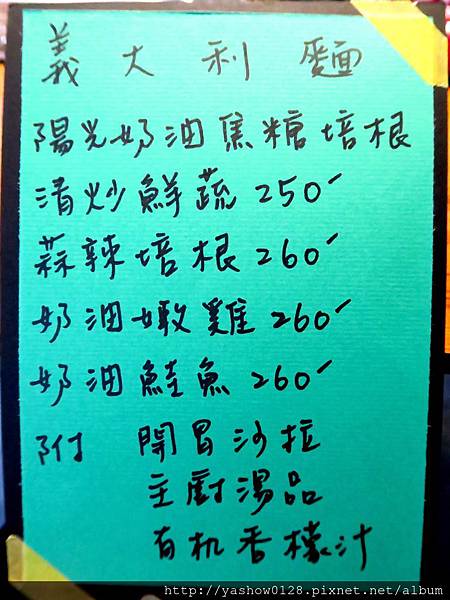 義大利麵
陽光奶油焦糖培根
清炒鮮蔬 250
蒜辣培根 260
奶油嫩雞 260
奶油鮭魚 260
附 開胃沙拉
主廚湯品
有机香檬汁
http://yashow0128.pixnet.net/album